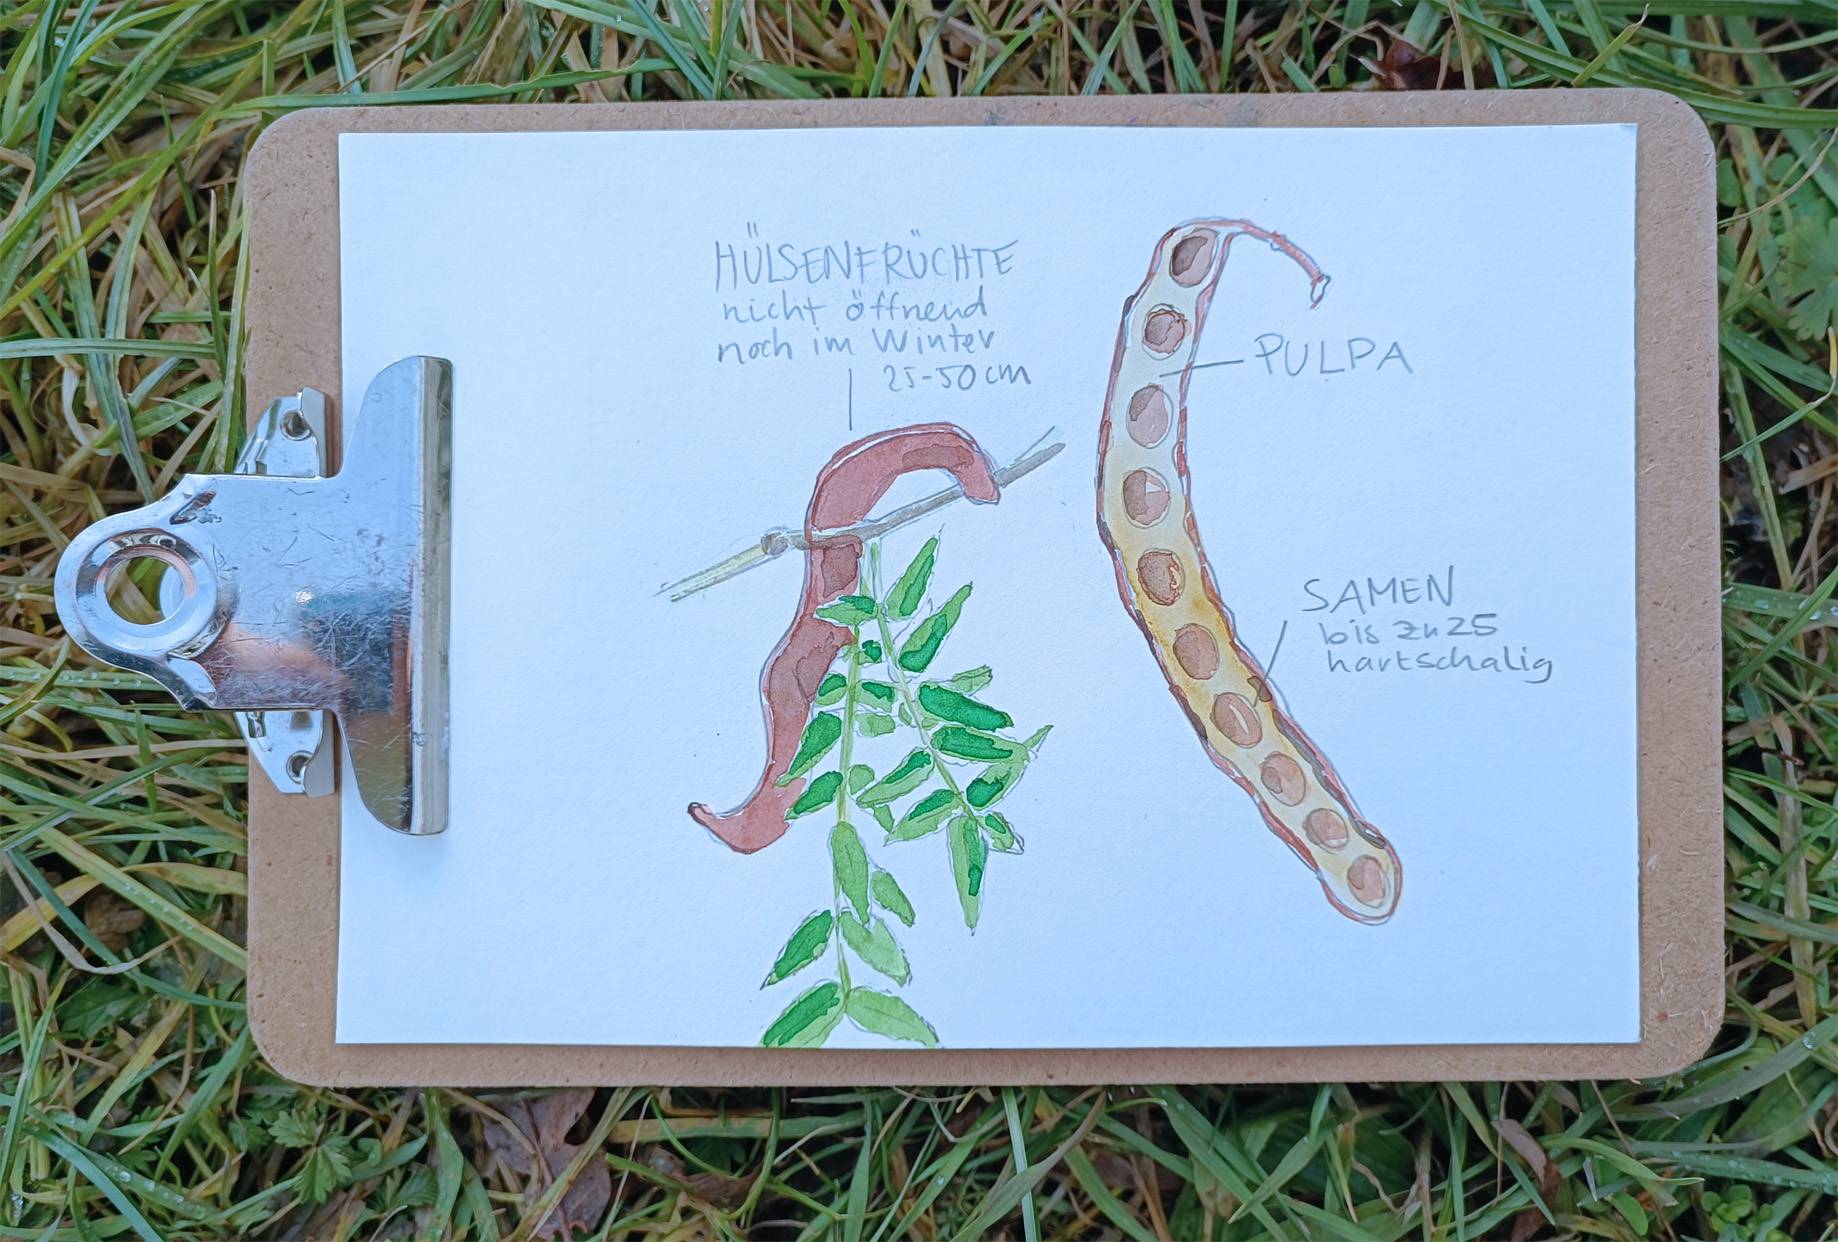 HÜLSENFRÜCHTE
nicht öffnend
noch im Winter
25-50cm
PULPA
SAMEN
bis zu 25
hartschalig